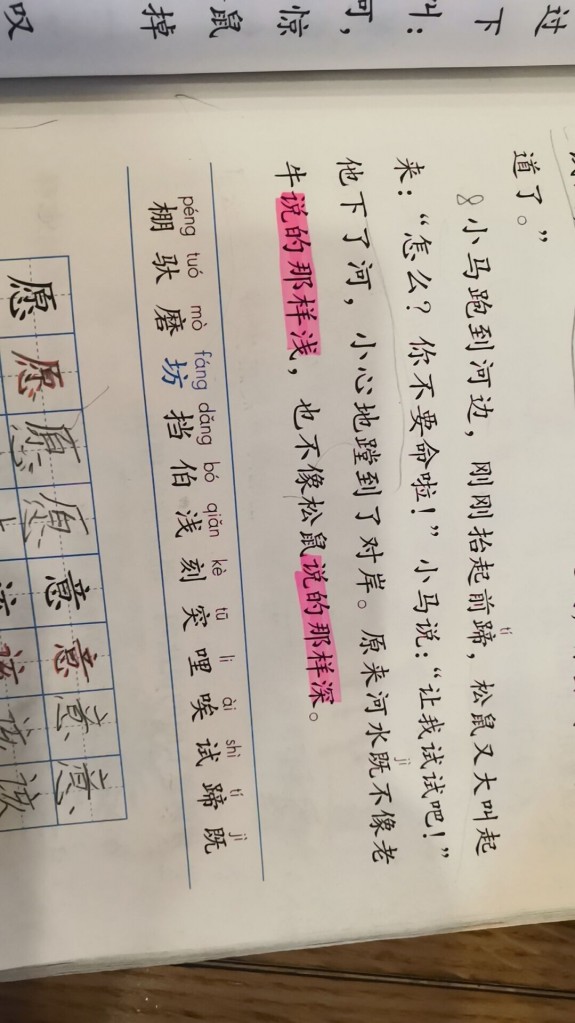 过
下
叫：
可，
惊
鼠
掉
叹
道了。”
8 小马跑到河边，刚刚抬起前蹄，松鼠又大叫起
tí
来：“怎么？你不要命啦！”小马说：“让我试试吧！”
他下了河，小心地蹚到了对岸。原来河水既不像老
jì
牛说的那样浅，也不像松鼠说的那样深。
péng tuó mò fáng dǎng bó qiǎn kè tū li ài shì tí jì
棚 驮 磨 坊 挡 伯 浅 刻 突 哩 唉 试 蹄 既
愿 愿 愿 愿 意 意 意 意
该 该 该 该